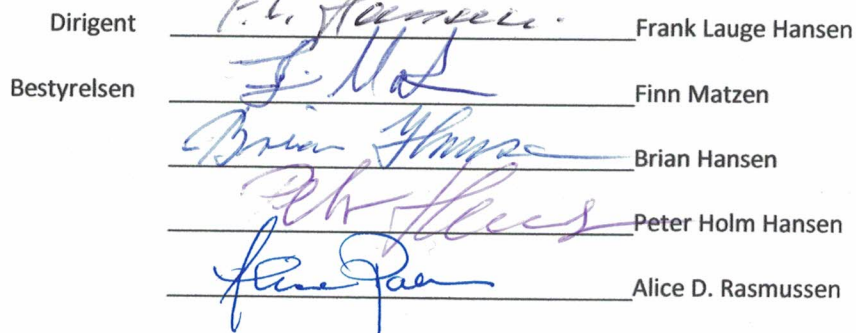 Dirigent F.L. Hansen. Frank Lauge Hansen
Bestyrelsen F. Mat Finn Matzen
Brian Hansen Brian Hansen
Peter Hans Peter Holm Hansen
Alice Ras Alice D. Rasmussen